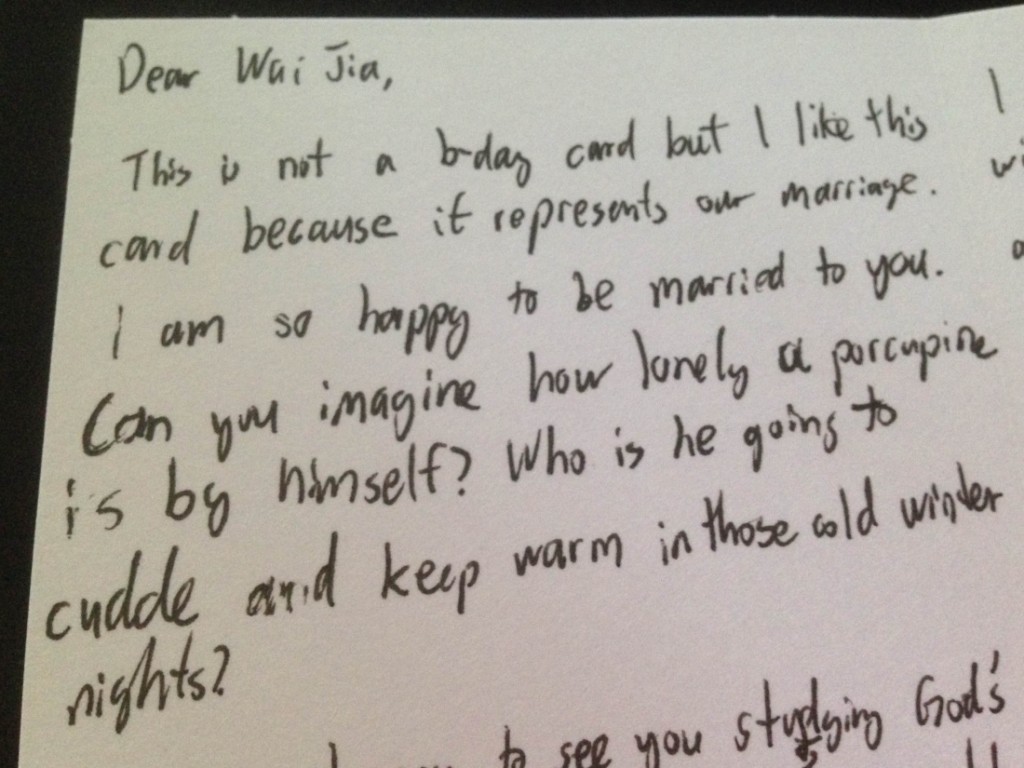 Dear Wai Jia,
This is not a b-day card but I like this
card because it represents our marriage.
I am so happy to be married to you.
Can you imagine how lonely a porcupine
is by himself? Who is he going to
cudde and keep warm in those cold winter
nights?
to see you studying God's